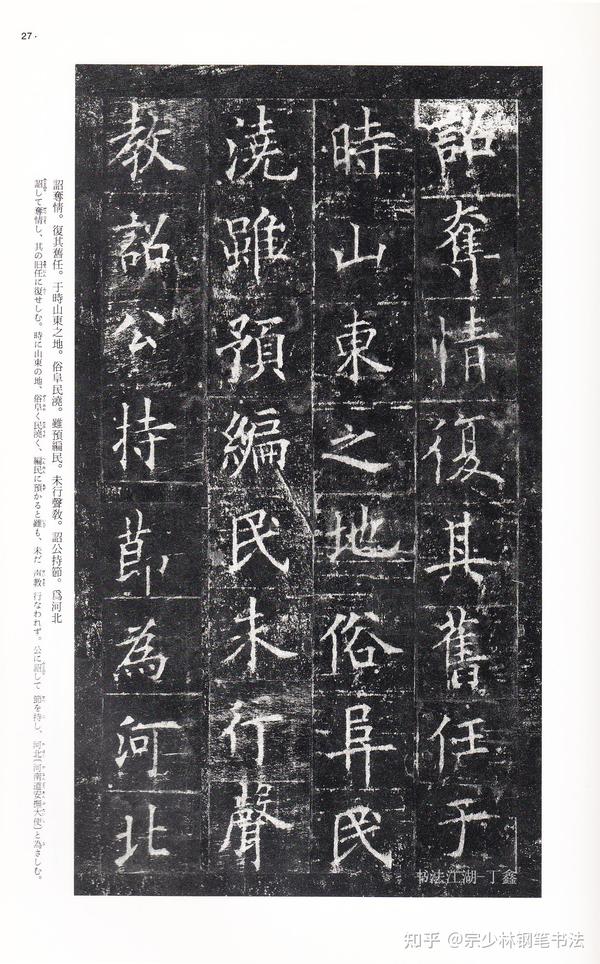 27
詔奪情復其舊任于
時山東之地俗阜民
澆雖預編民未行聲
教詔公持節為河北
詔奪情。復其舊任。于時山東之地。俗阜民澆。雖預編民。未行聲教。詔公持節。爲河北
詔して奪情し、其の旧任に復せしむ。時に山東の地、俗阜く民澆く、編民に預かると雖も、未だ声教行なわれず。公に詔して節を持し、河北(河南道安撫大使)と為さしむ。
书法江湖-丁鑫
知乎 @宗少林钢笔书法